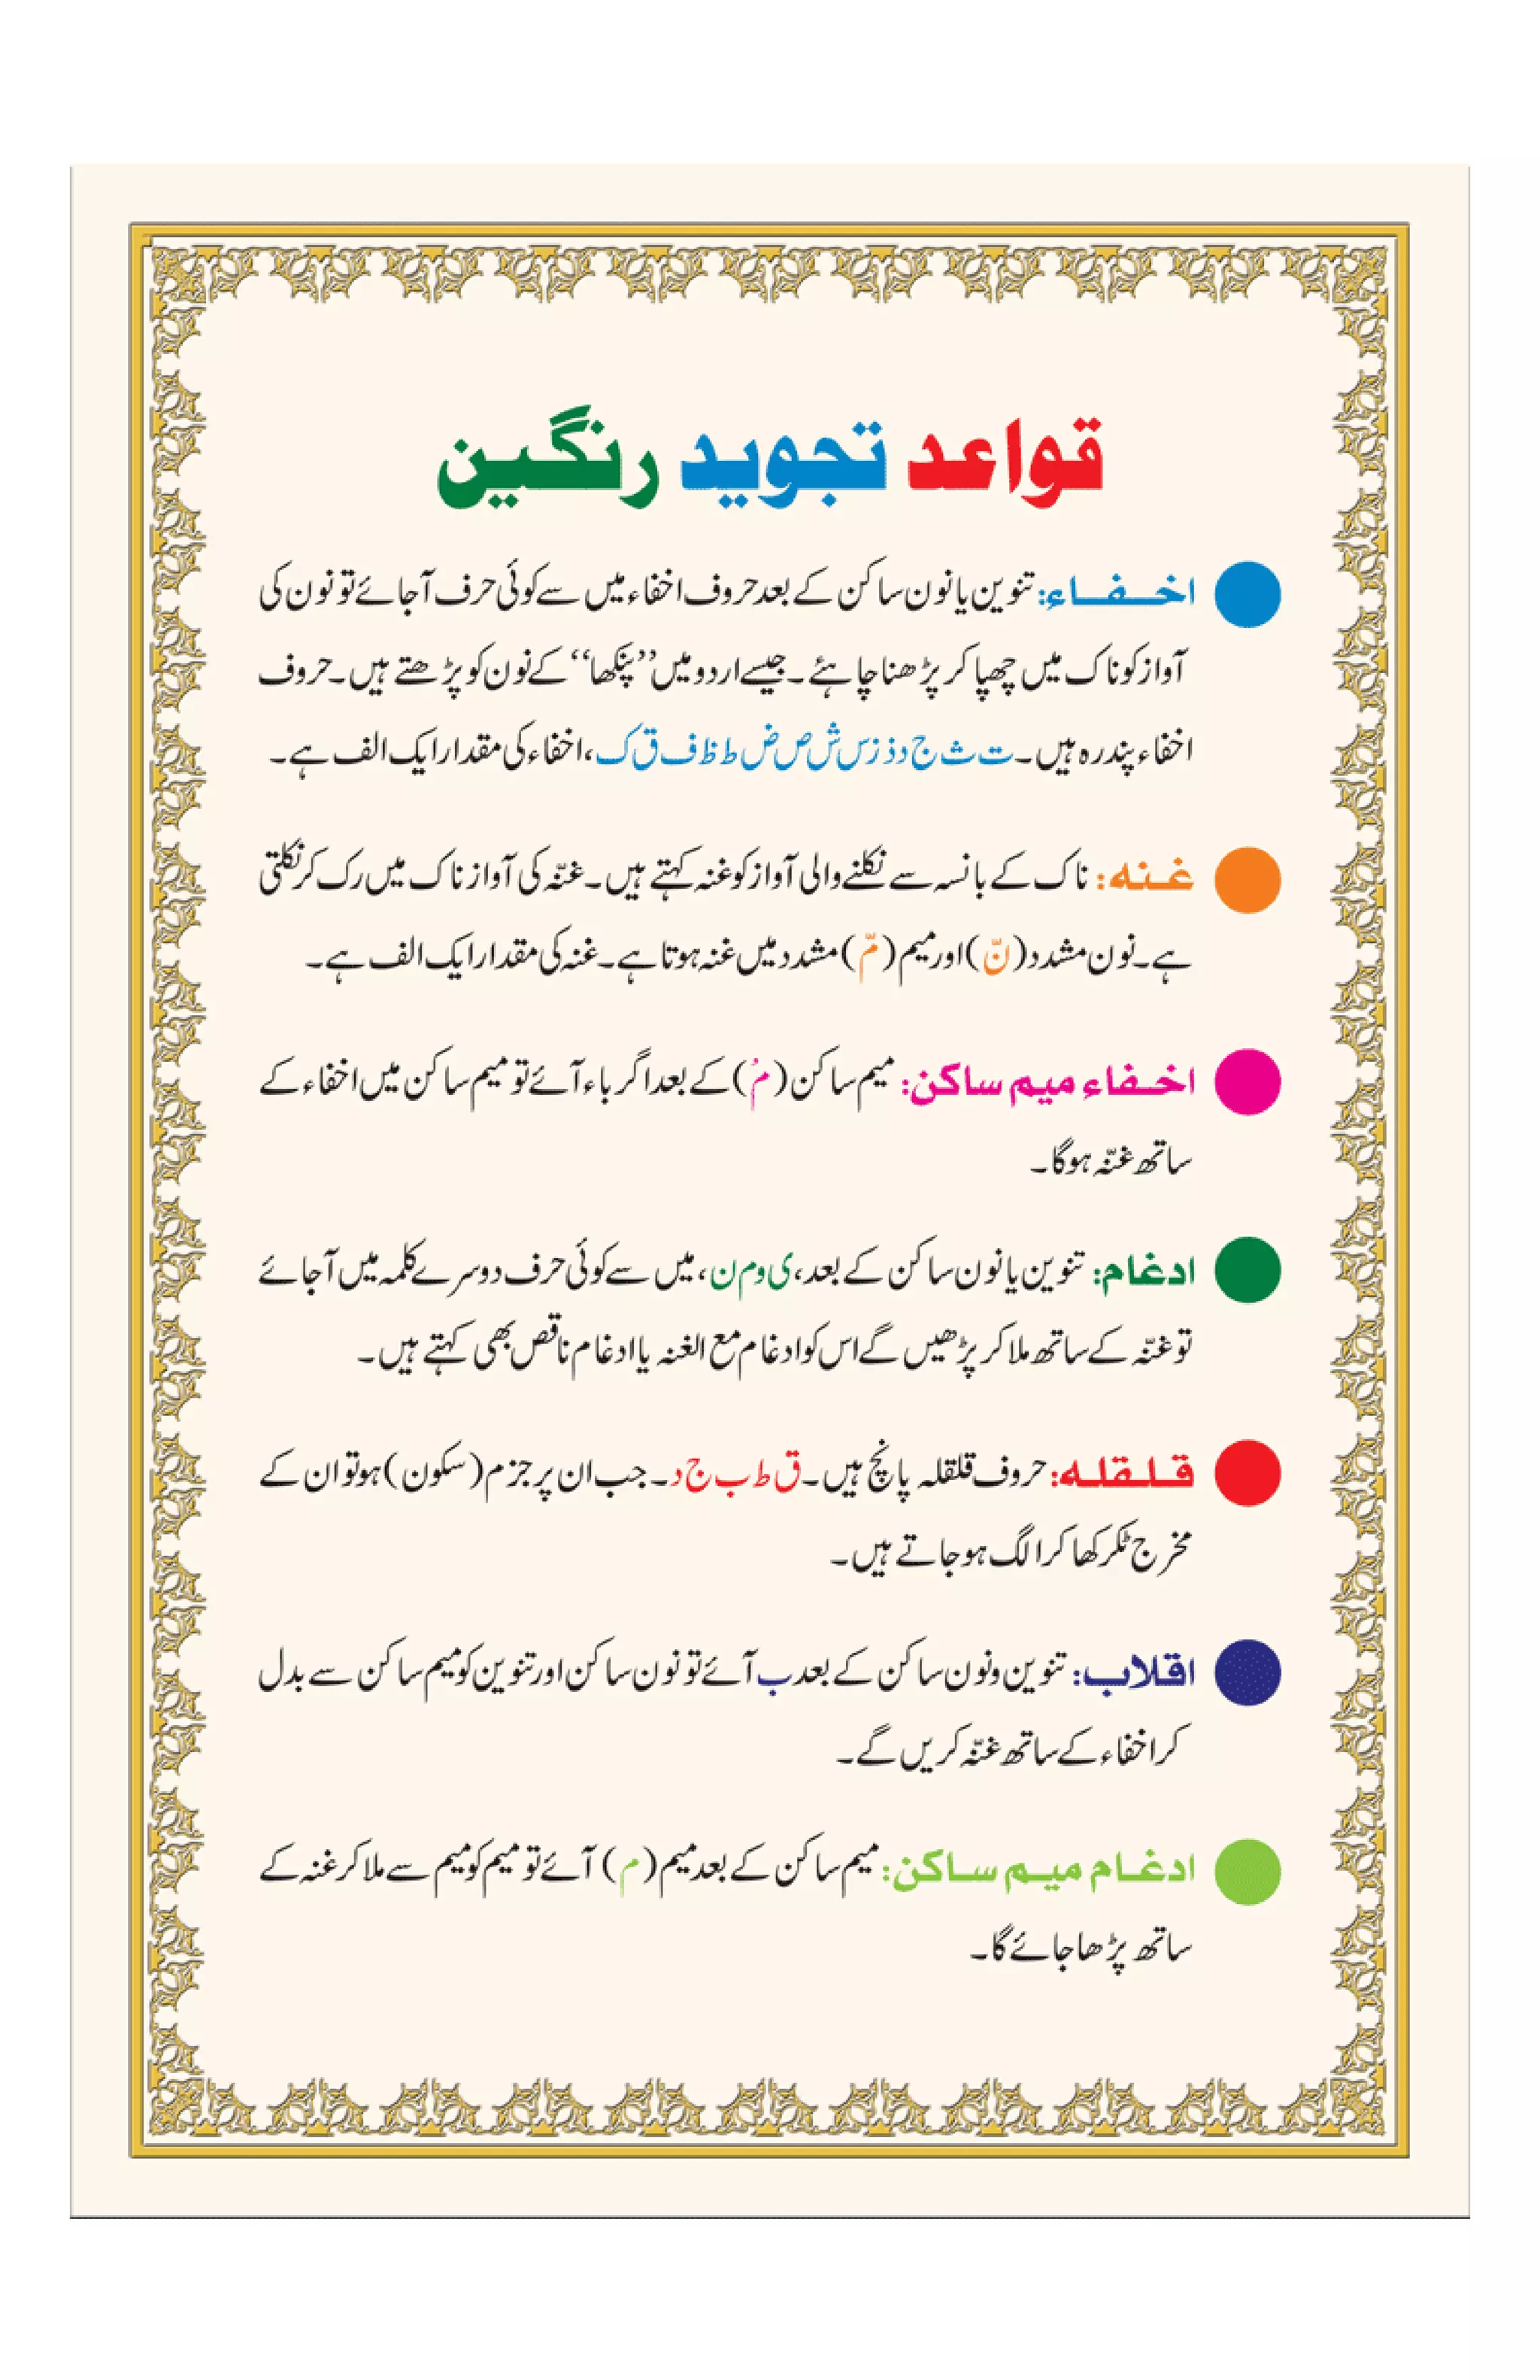 قواعد تجوید رنگین
اخفاء: تنوین یا نون ساکن کے بعد حروف اخفاء میں سے کوئی حرف آجائے تو نون کی
آواز کو ناک میں چھپا کر پڑھنا چاہئے۔ جیسے اردو میں ’’پنکھا‘‘ کے نون کو پڑھتے ہیں۔ حروف
اخفاء پندرہ ہیں۔ ت ث ج د ذ ز س ش ص ض ط ظ ف ق ک، اخفاء کی مقدار ایک الف ہے۔
غنہ: ناک کے بانسہ سے نکلنے والی آواز کو غنہ کہتے ہیں۔ غنّہ کی آواز ناک میں رک کر نکلتی
ہے۔ نون مشدد (نّ) اور میم (مّ) مشدد میں غنہ ہوتا ہے۔ غنہ کی مقدار ایک الف ہے۔
اخفاء میم ساکن: میم ساکن (مْ) کے بعد اگر باء آئے تو میم ساکن میں اخفاء کے
ساتھ غنّہ ہوگا۔
ادغام: تنوین یا نون ساکن کے بعد، ی و م ن، میں سے کوئی حرف دوسرے کلمہ میں آجائے
تو غنّہ کے ساتھ ملا کر پڑھیں گے اس کو ادغام مع الغنہ یا ادغام ناقص بھی کہتے ہیں۔
قلقلہ: حروف قلقلہ پانچ ہیں۔ ق ط ب ج د۔ جب ان پر جزم (سکون) ہو تو ان کے
مخرج ٹکر کھا کر الگ ہو جاتے ہیں۔
اقلاب: تنوین و نون ساکن کے بعد ب آئے تو نون ساکن اور تنوین کو میم ساکن سے بدل
کر اخفاء کے ساتھ غنّہ کریں گے۔
ادغام میم ساکن: میم ساکن کے بعد میم (م) آئے تو میم کو میم سے ملا کر غنہ کے
ساتھ پڑھا جائے گا۔